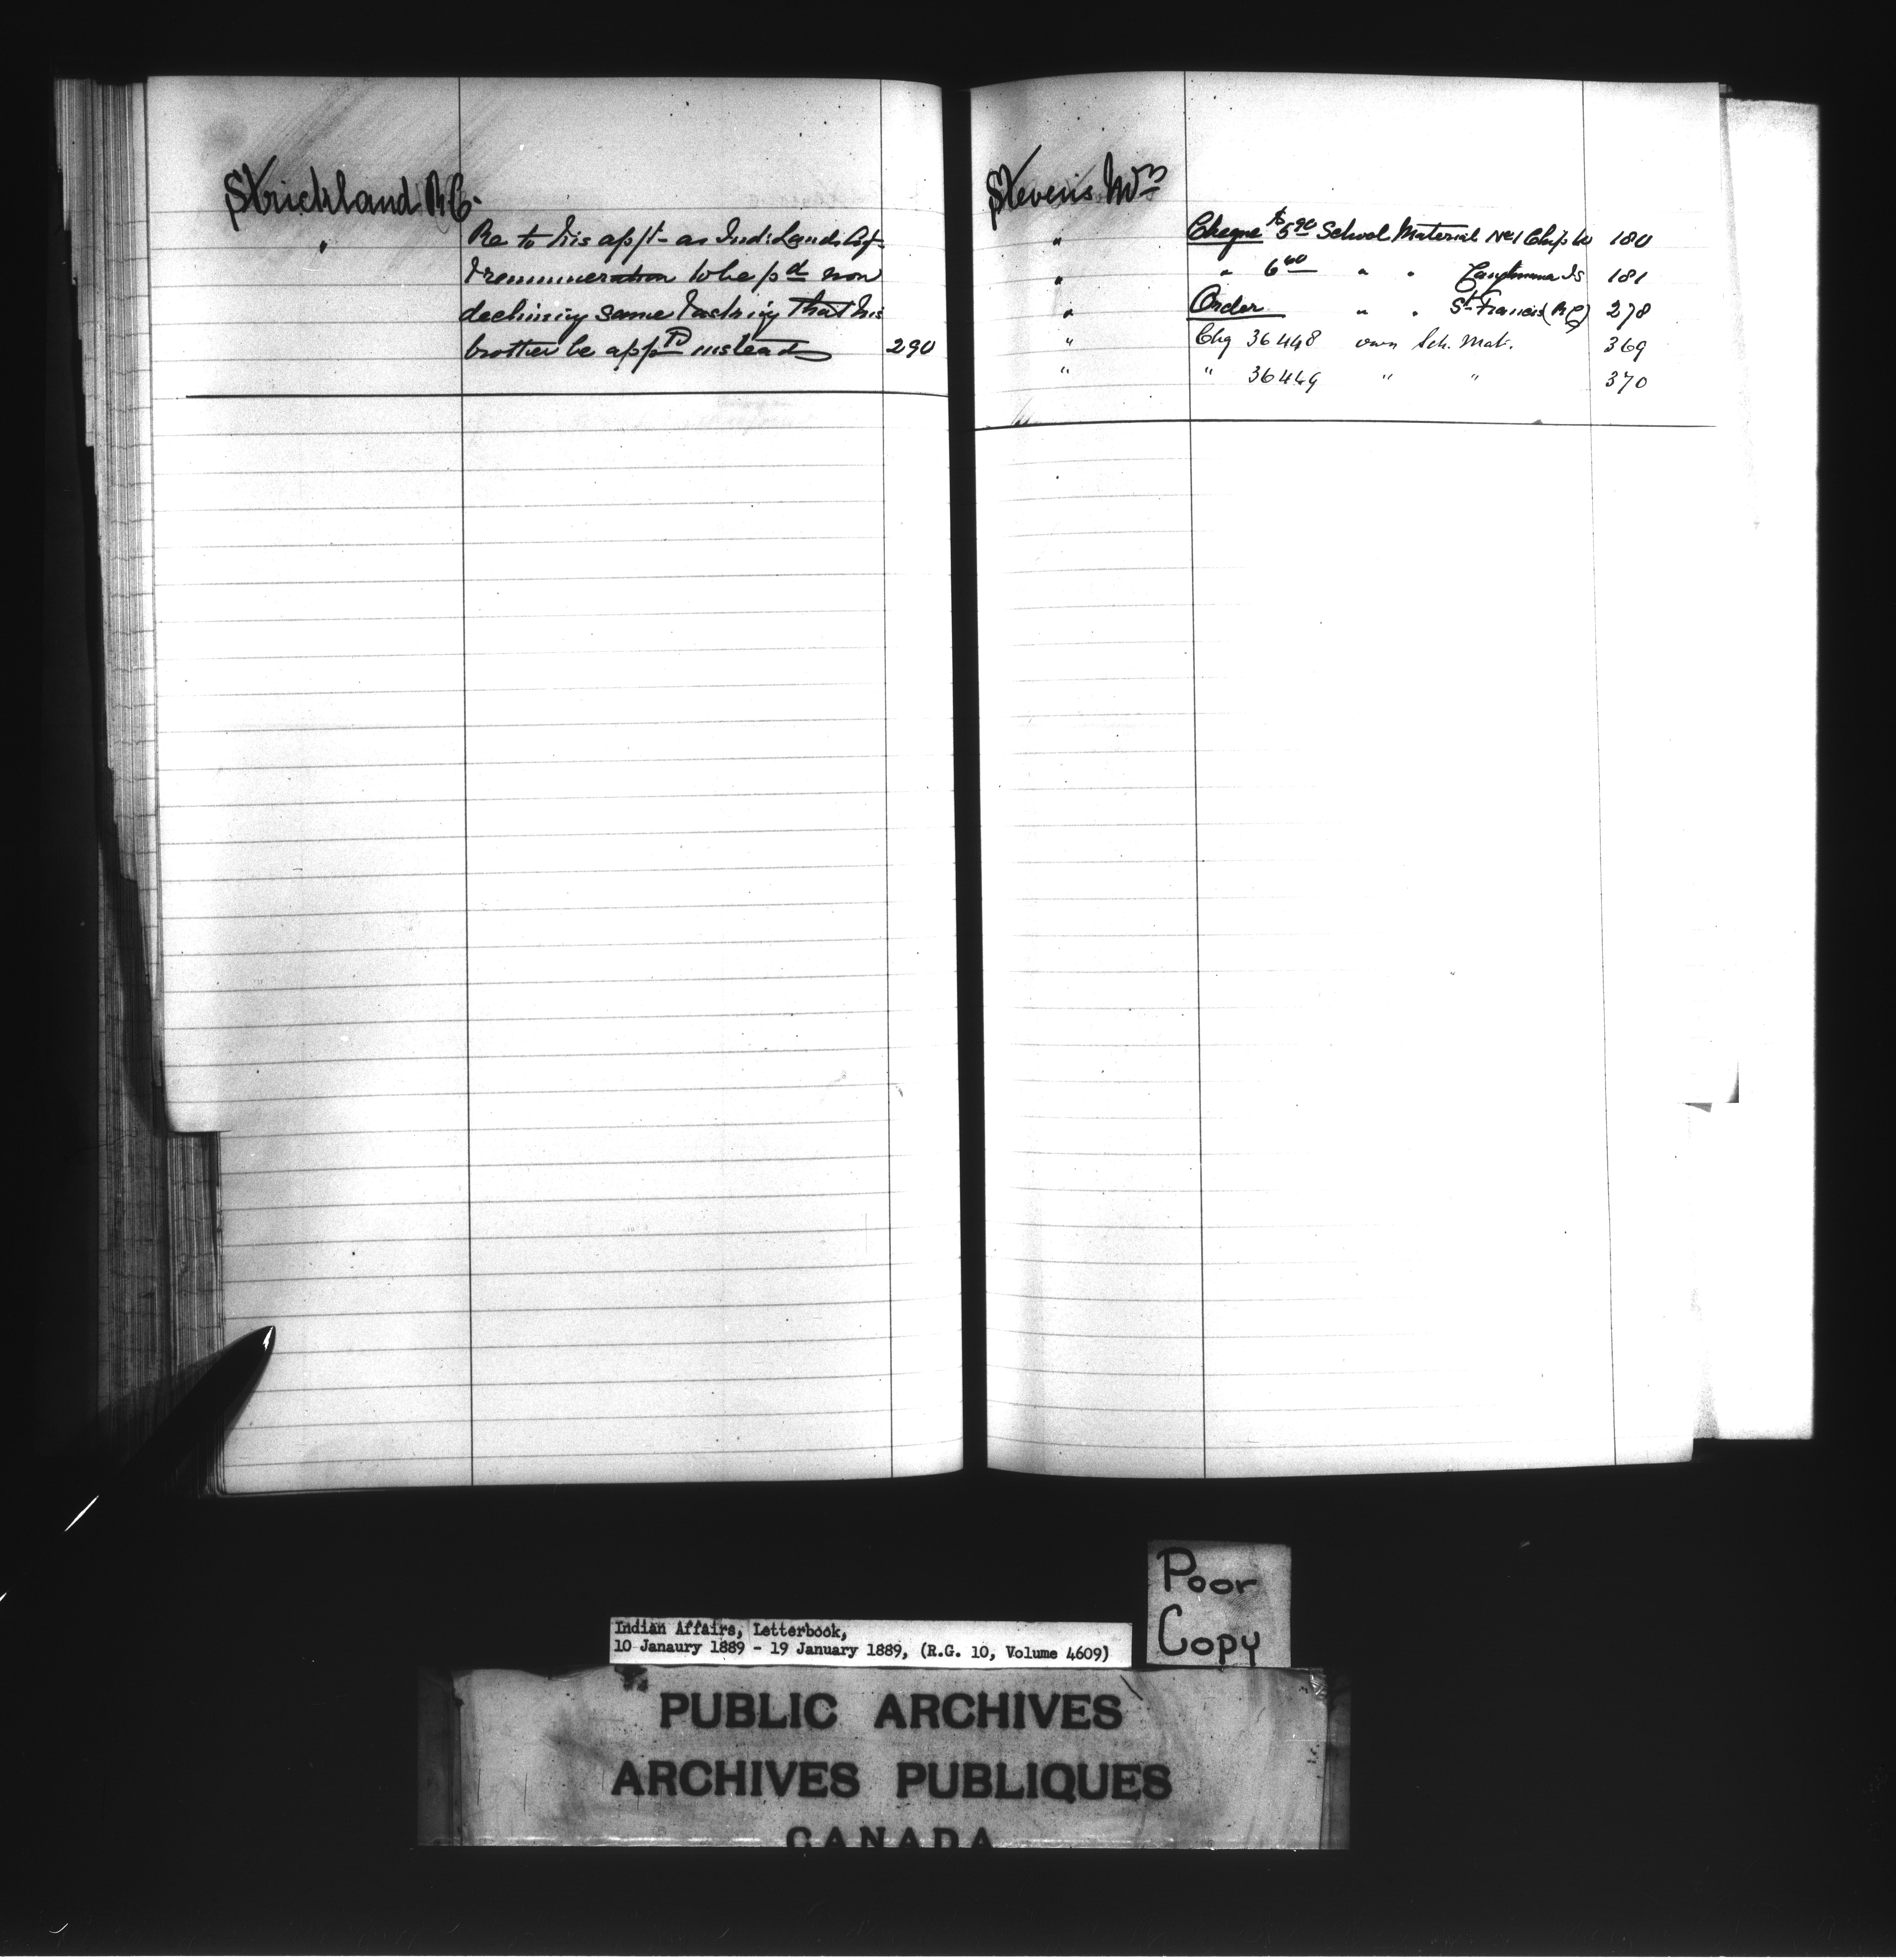 Strickland R C.
" Re to his app't - as Ind: Lands Agt
& remuneration to be pd non
declining same & asking that his
brother be appTD instead 290
Stevens Wm
" Cheque $5.90 School Material No 1 Chip to 180
" " 6.60 " " Is 181
" Order " " St. Francis (RC) 278
" Chq 36448 own Sch. Mat. 369
" " 36449 " " 370
Poor
Copy
Indian Affairs, Letterbook,
10 Janaury 1889 - 19 January 1889, (R.G. 10, Volume 4609)
PUBLIC ARCHIVES
ARCHIVES PUBLIQUES
CANADA